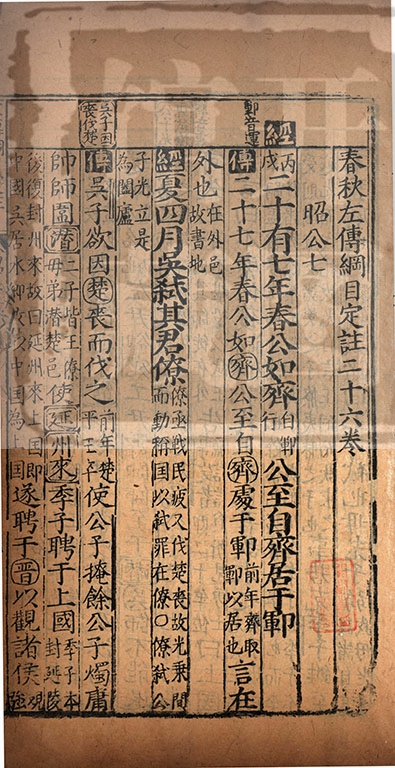 春秋左傳綱目定註二十六卷
昭公七
鄆音運
經丙戌二十有七年春公如齊自鄆行公至自齊居于鄆
傳二十七年春公如齊公至自齊處于鄆前年齊取鄆以居也言在
外也在外邑故書地
經夏四月吳弒其君僚僚亟戰民疲又伐楚喪故光乘間而動稱國以弒罪在僚○僚弒公
子光立是為闔廬
吳子因喪伐楚
傳吳子欲因楚喪而伐之前年楚平王卒使公子掩餘公子燭庸
帥師圍潛二子皆王僚母弟潛楚邑使延州來季子聘于上國季子本封延陵
後復封州來故曰延州來上國即中國吳居水鄉故以中國為上國遂聘于晉以觀諸侯觀強